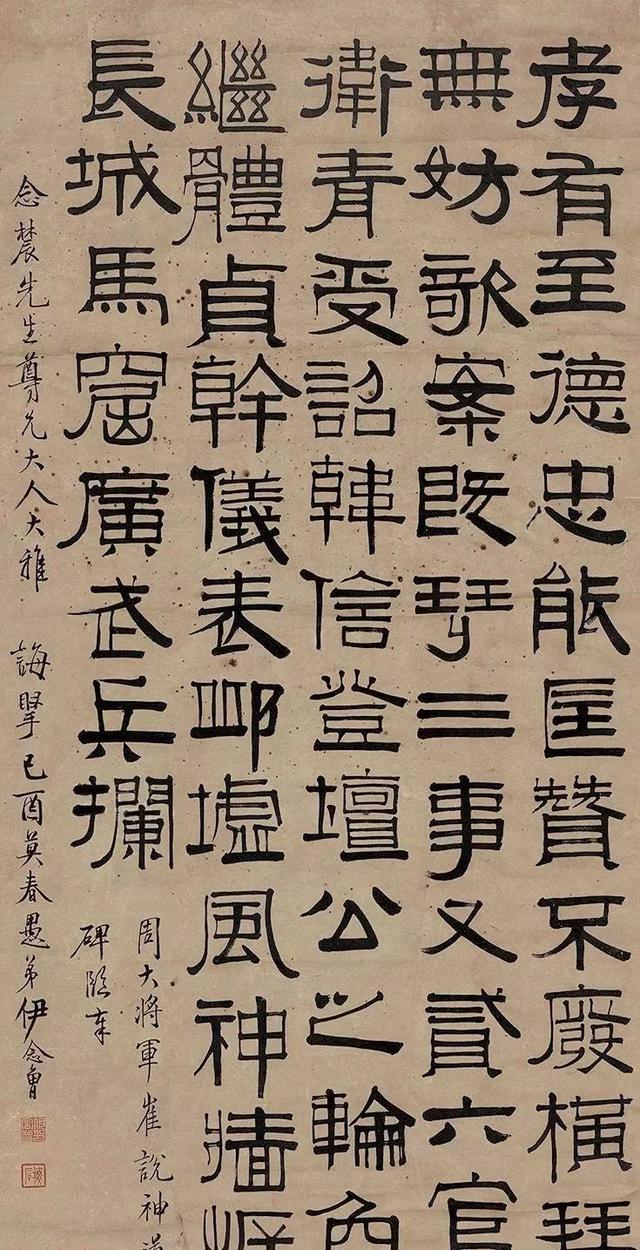 孝有至德忠能匡贊不廢橫
無妨歌案既琴三事又貳六官
衛青受詔韓信登壇公之輪奐
繼體貞幹儀表邱墟風神牆
長城馬窟廣武兵攔
周大將軍崔說神道
碑臨奉
念農先生尊兄大人大雅 誨擘 己酉莫春愚弟伊念曾